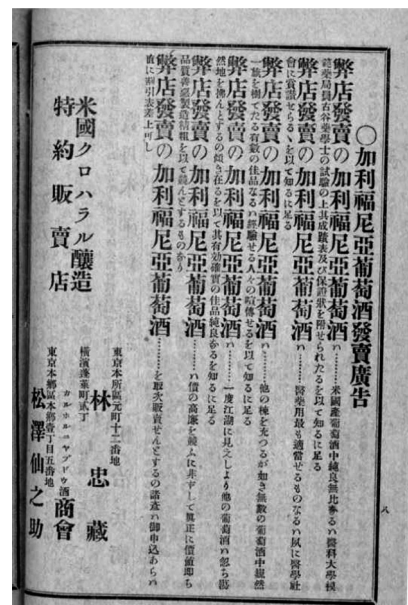 〇加利福尼亞葡萄酒發賣廣告
弊店發賣の加利福尼亞葡萄酒ハ………米國產葡萄酒中純良無比なるハ醫科大學模
範藥局員古谷藥學士の試驗の上其成蹟表及び保證狀を附せられたるを以て知るに足る
弊店發賣の加利福尼亞葡萄酒ハ………醫藥用最も適當せるものなるハ夙に醫學社
會に賞讚せらるゝを以て知るに足る
弊店發賣の加利福尼亞葡萄酒ハ………他の棟を充つるが如き無數の葡萄酒中巍然
一族を樹てたる有數の佳品なるハ經驗せる人々の喧傳せるを以て知るに足る
弊店發賣の加利福尼亞葡萄酒ハ………一度江湖に見えしより他の葡萄酒ハ忽ち蕩
然地を拂んとするの傾き在るを以て其有効確實の佳品純良なるを知るに足る
弊店發賣の加利福尼亞葡萄酒ハ………價の高廉を競ふに非ずして眞正に價値即ち
品質善惡製造精粗を以て競んとするものなり
弊店發賣の加利福尼亞葡萄酒………を取次販賣せんとするの諸彥ハ御申込あらバ
直に割引表差上可し
米國クロハラル釀造
特約販賣店
東京本所區元町十二番地
林忠藏
橫濱蓬萊町貳丁
カルホルニヤブドウ酒商會
東京本鄉區本鄉壹丁目五番地
松澤仙之助
八